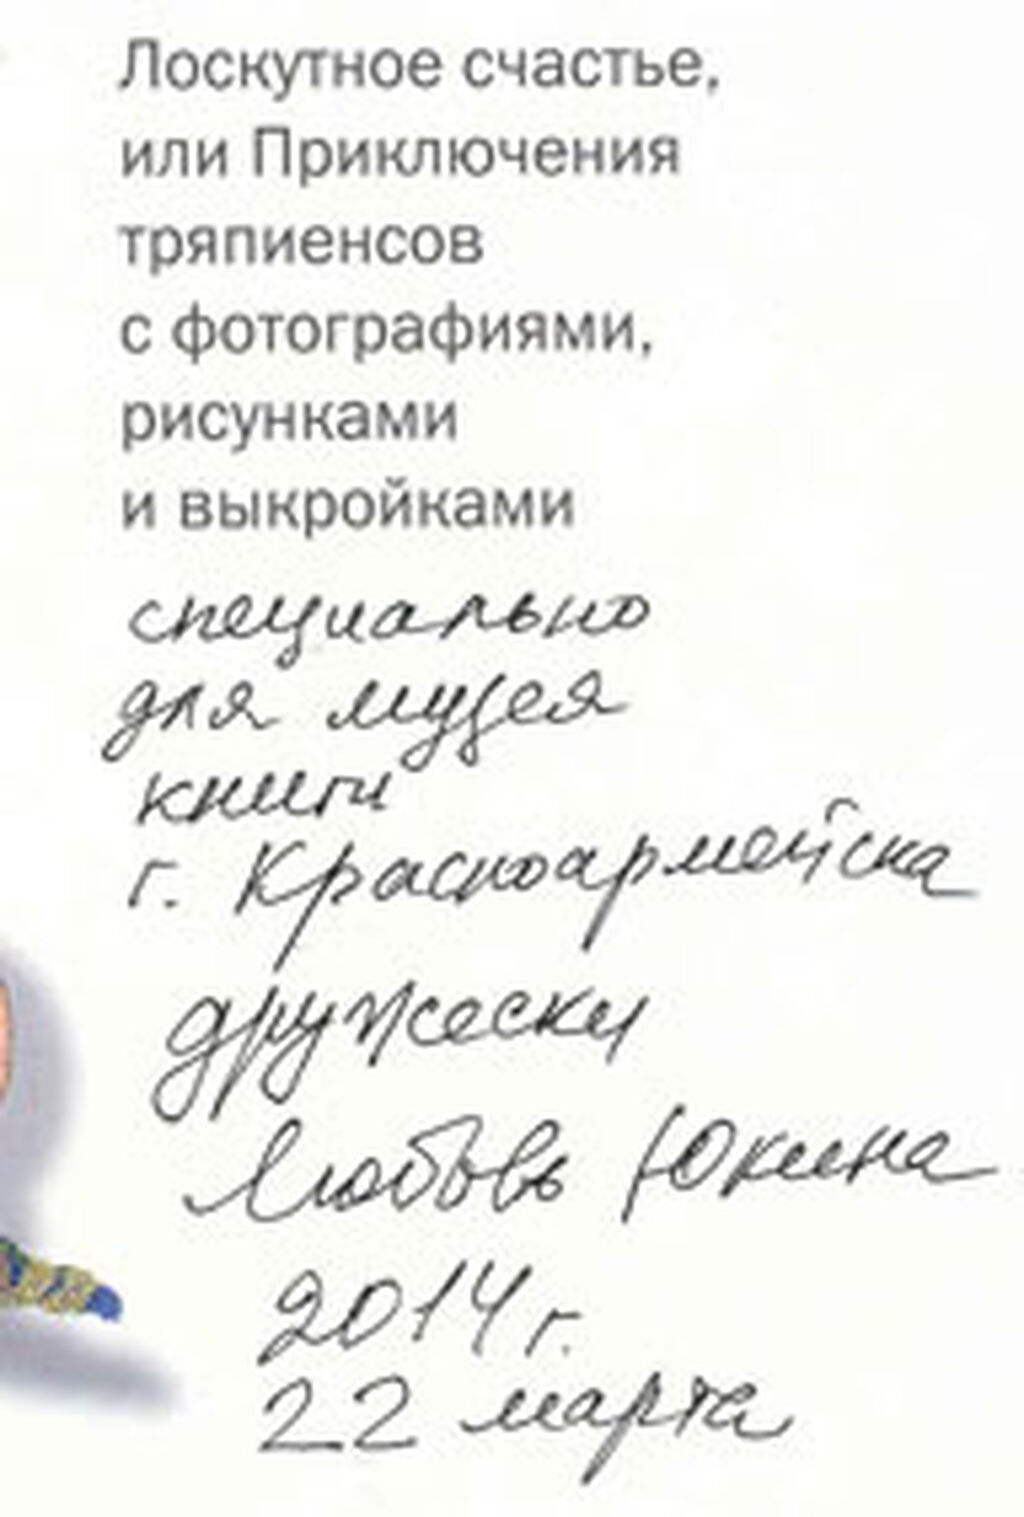 Лоскутное счастье,
или Приключения
тряпиенсов
с фотографиями,
рисунками
и выкройками
специально
для музея
книги
г. Красноармейска
дружески
Любовь Юкина
2014 г.
22 марта